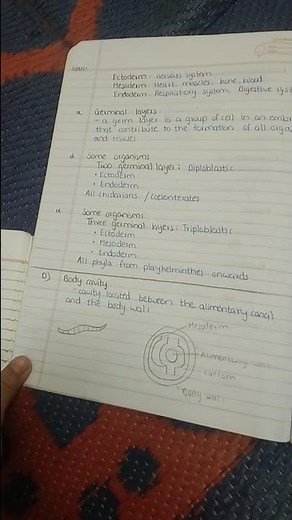 Ectoderm - nervous system
Mesoderm - Heart, muscles, bone, blood
Endoderm - Respiratory system, Digestive syst
a. Germinal layers
- a germ layer is a group of cell in an embr
that contribute to the formation of all orga
and tissues
d. Some organisms
Two germinal layer : Diploblastic
• Ectoderm
• Endoderm
All cnidarians / coelenterates
d. Some organisms
Three germinal layers : Triploblastic
• Ectoderm
• Mesoderm
• Endoderm
All phyla from playhelminthes onwards
D) Body cavity
- cavity located between the alimentary canal
and the body wall
Mesoderm
Alimentary canal
Body wall